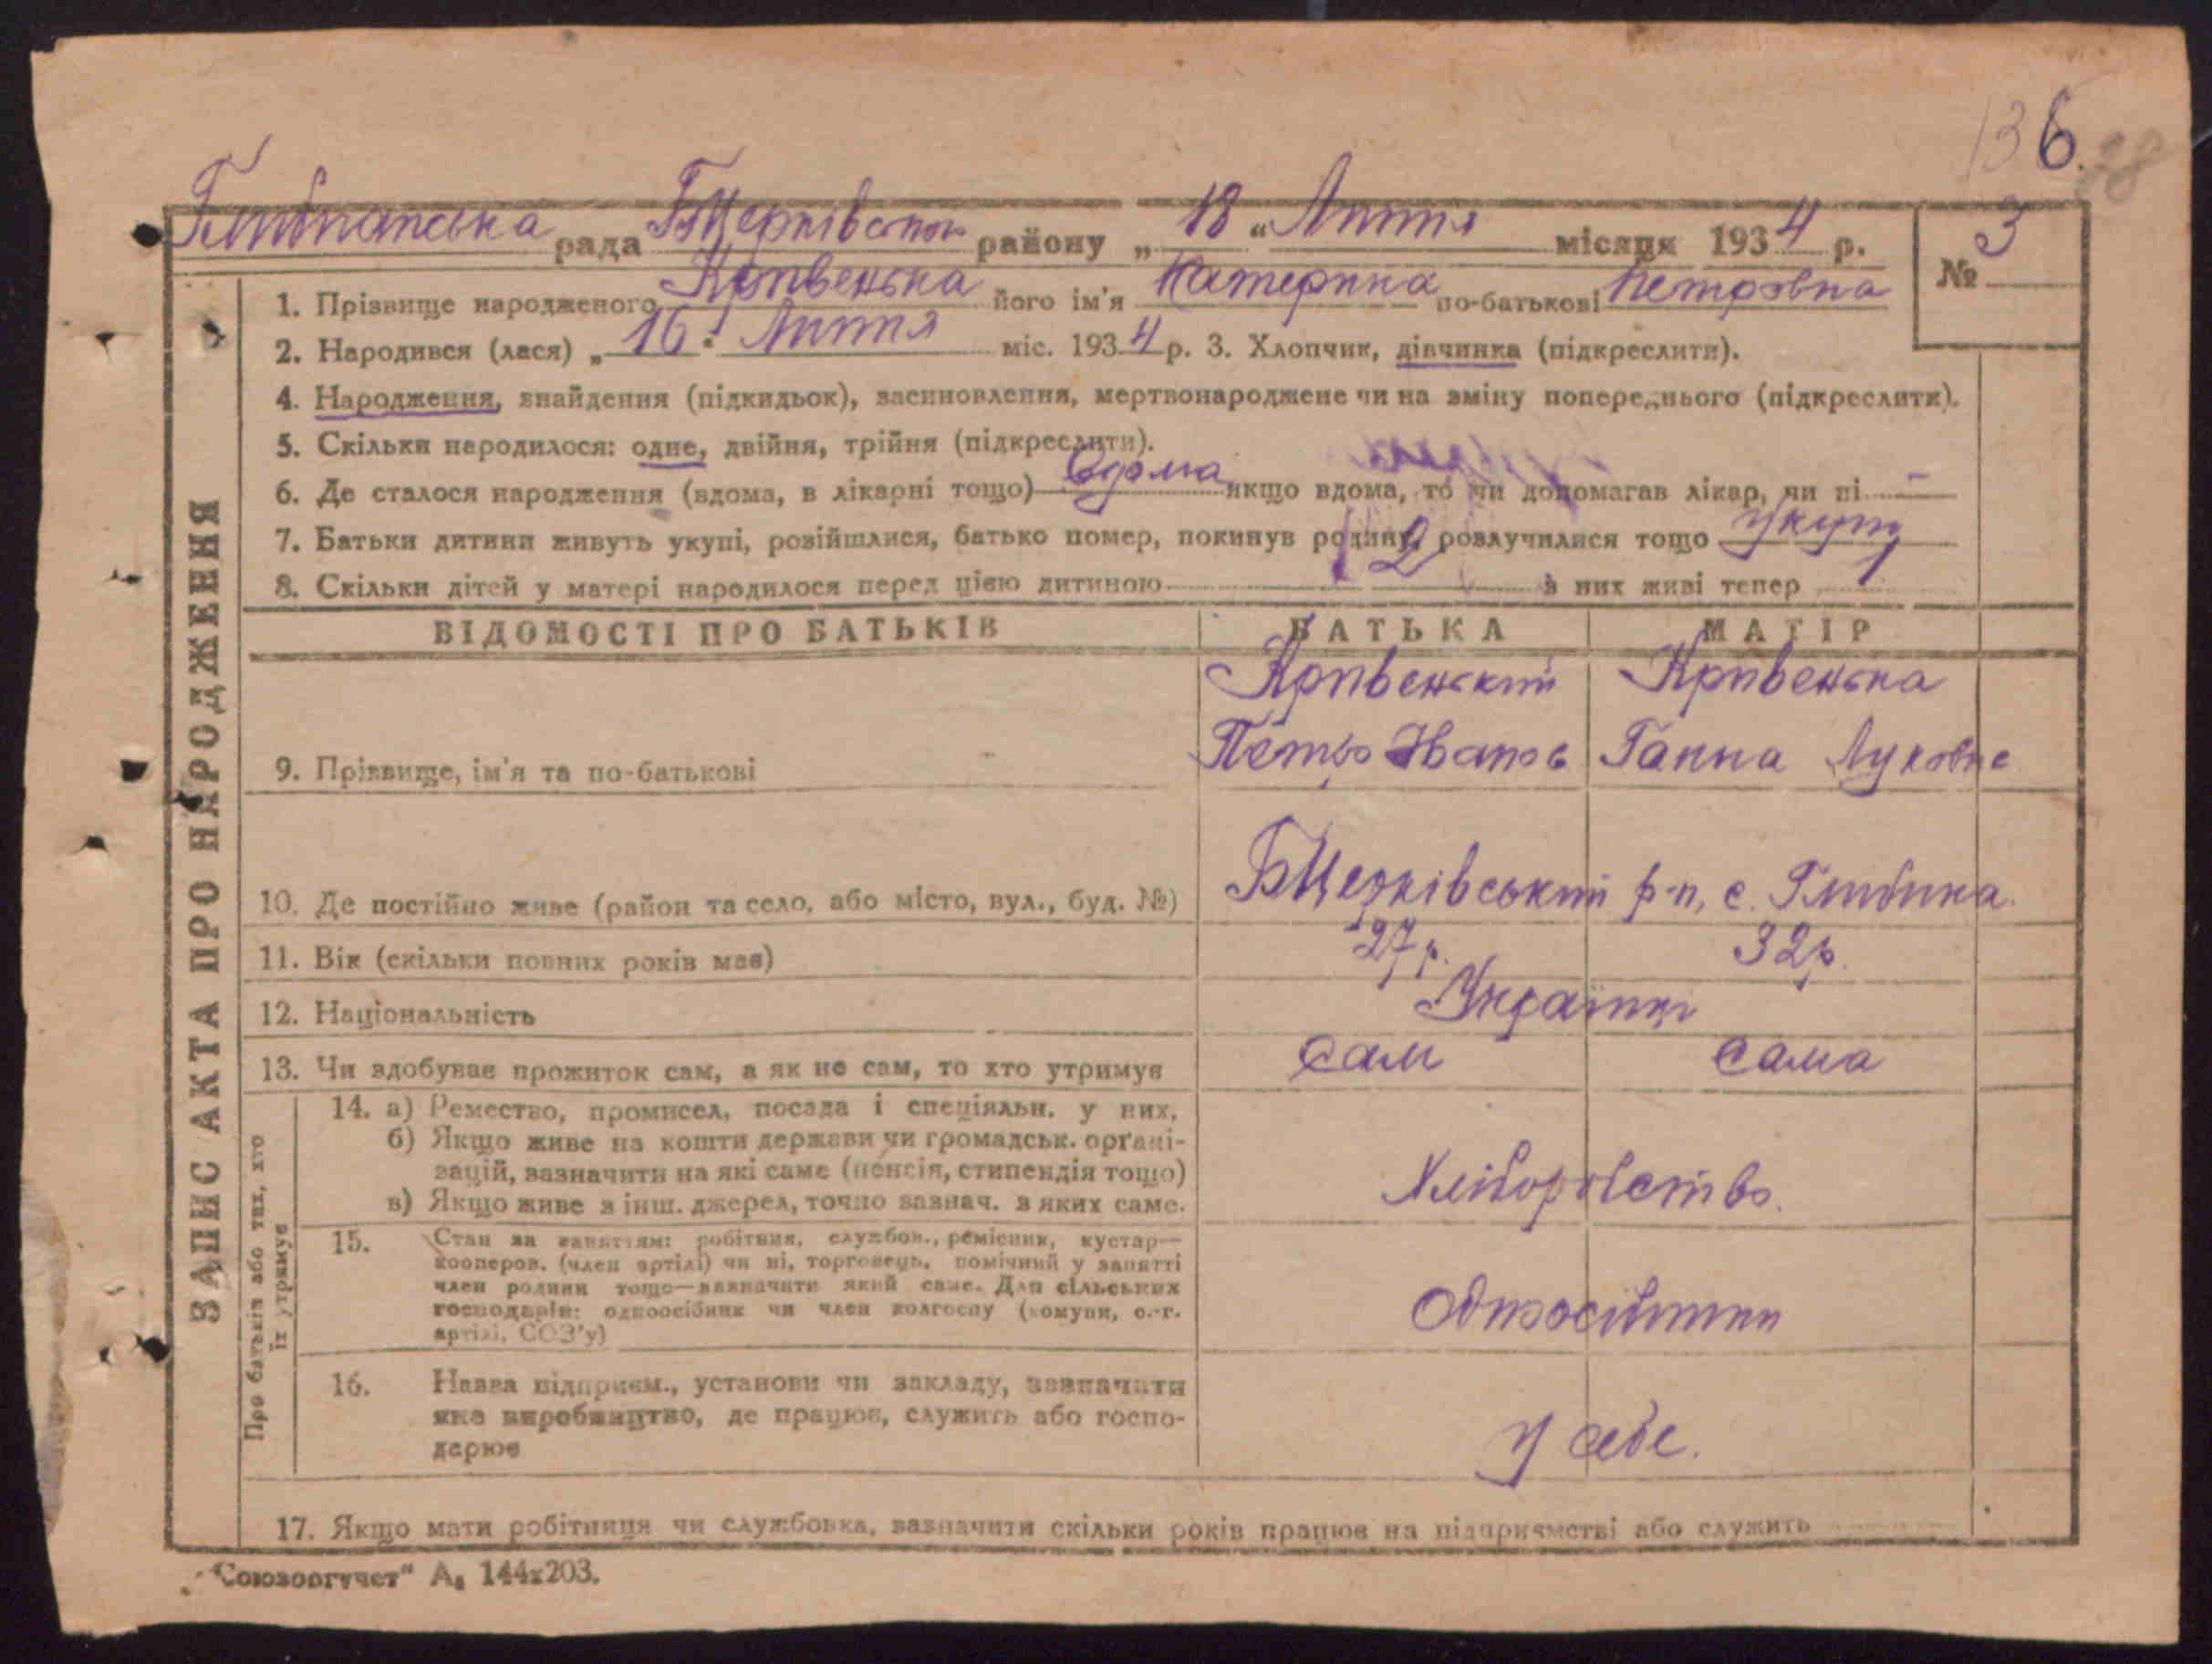 136.
Глибчанська рада БЦерківськ району „18“ Липня місяця 1934 р.
№ 3
ЗАПИС АКТА ПРО НАРОДЖЕННЯ
1. Прізвище народженого Кривенька його ім'я Катерина по-батькові Петровна
2. Народився (лася) „16“ Липня міс. 1934 р. 3. Хлопчик, дівчинка (підкреслити).
4. Народження, знайдення (підкидьок), засиновлення, мертвонароджене чи на зміну попереднього (підкреслити).
5. Скільки народилося: одне, двійня, трійня (підкреслити).
6. Де сталося народження (вдома, в лікарні тощо) Вдома якщо вдома, то чи допомагав лікар, чи ні –
7. Батьки дитини живуть укупі, розійшлися, батько помер, покинув родину, розлучилися тощо укупі
8. Скільки дітей у матері народилося перед цією дитиною 2 з них живі тепер 1
ВІДОМОСТІ ПРО БАТЬКІВ БАТЬКА МАТІР
Кривенький Кривенька
9. Прізвище, ім'я та по-батькові Петро Іванов Ганна Луковна
10. Де постійно живе (район та село, або місто, вул., буд. №) БЦерківський р-н, с. Глибчка.
11. Вік (скільки повних років має) 27 р. 32 р.
12. Національність Українці
13. Чи здобуває прожиток сам, а як не сам, то хто утримує сам сама
Про батьків або тих, хто
їх утримує
14. а) Ремество, промисел, посада і спеціяльн. у них.
б) Якщо живе на кошти держави чи громадськ. орґані-
зацій, зазначити на які саме (пенсія, стипендія тощо)
в) Якщо живе з інш. джерел, точно зазнач. з яких саме.
Хліборобство.
15. Стан за заняттям: робітник, службов., ремісник, кустар—
кооперов. (член артілі) чи ні, торговець, помічний у занятті
член родини тощо—зазначити який саме. Для сільських
господарів: одноосібник чи член колгоспу (комуни, с.-г.
артілі, СОЗ'у)
Одноосібники
16. Назва підприєм., установи чи закладу, зазначити
яке виробництво, де працює, служить або госпо-
дарює
У себе.
17. Якщо мати робітниця чи службовка, зазначити скільки років працює на підприємстві або служить
„Союзоргучет“ А₅ 144х203.